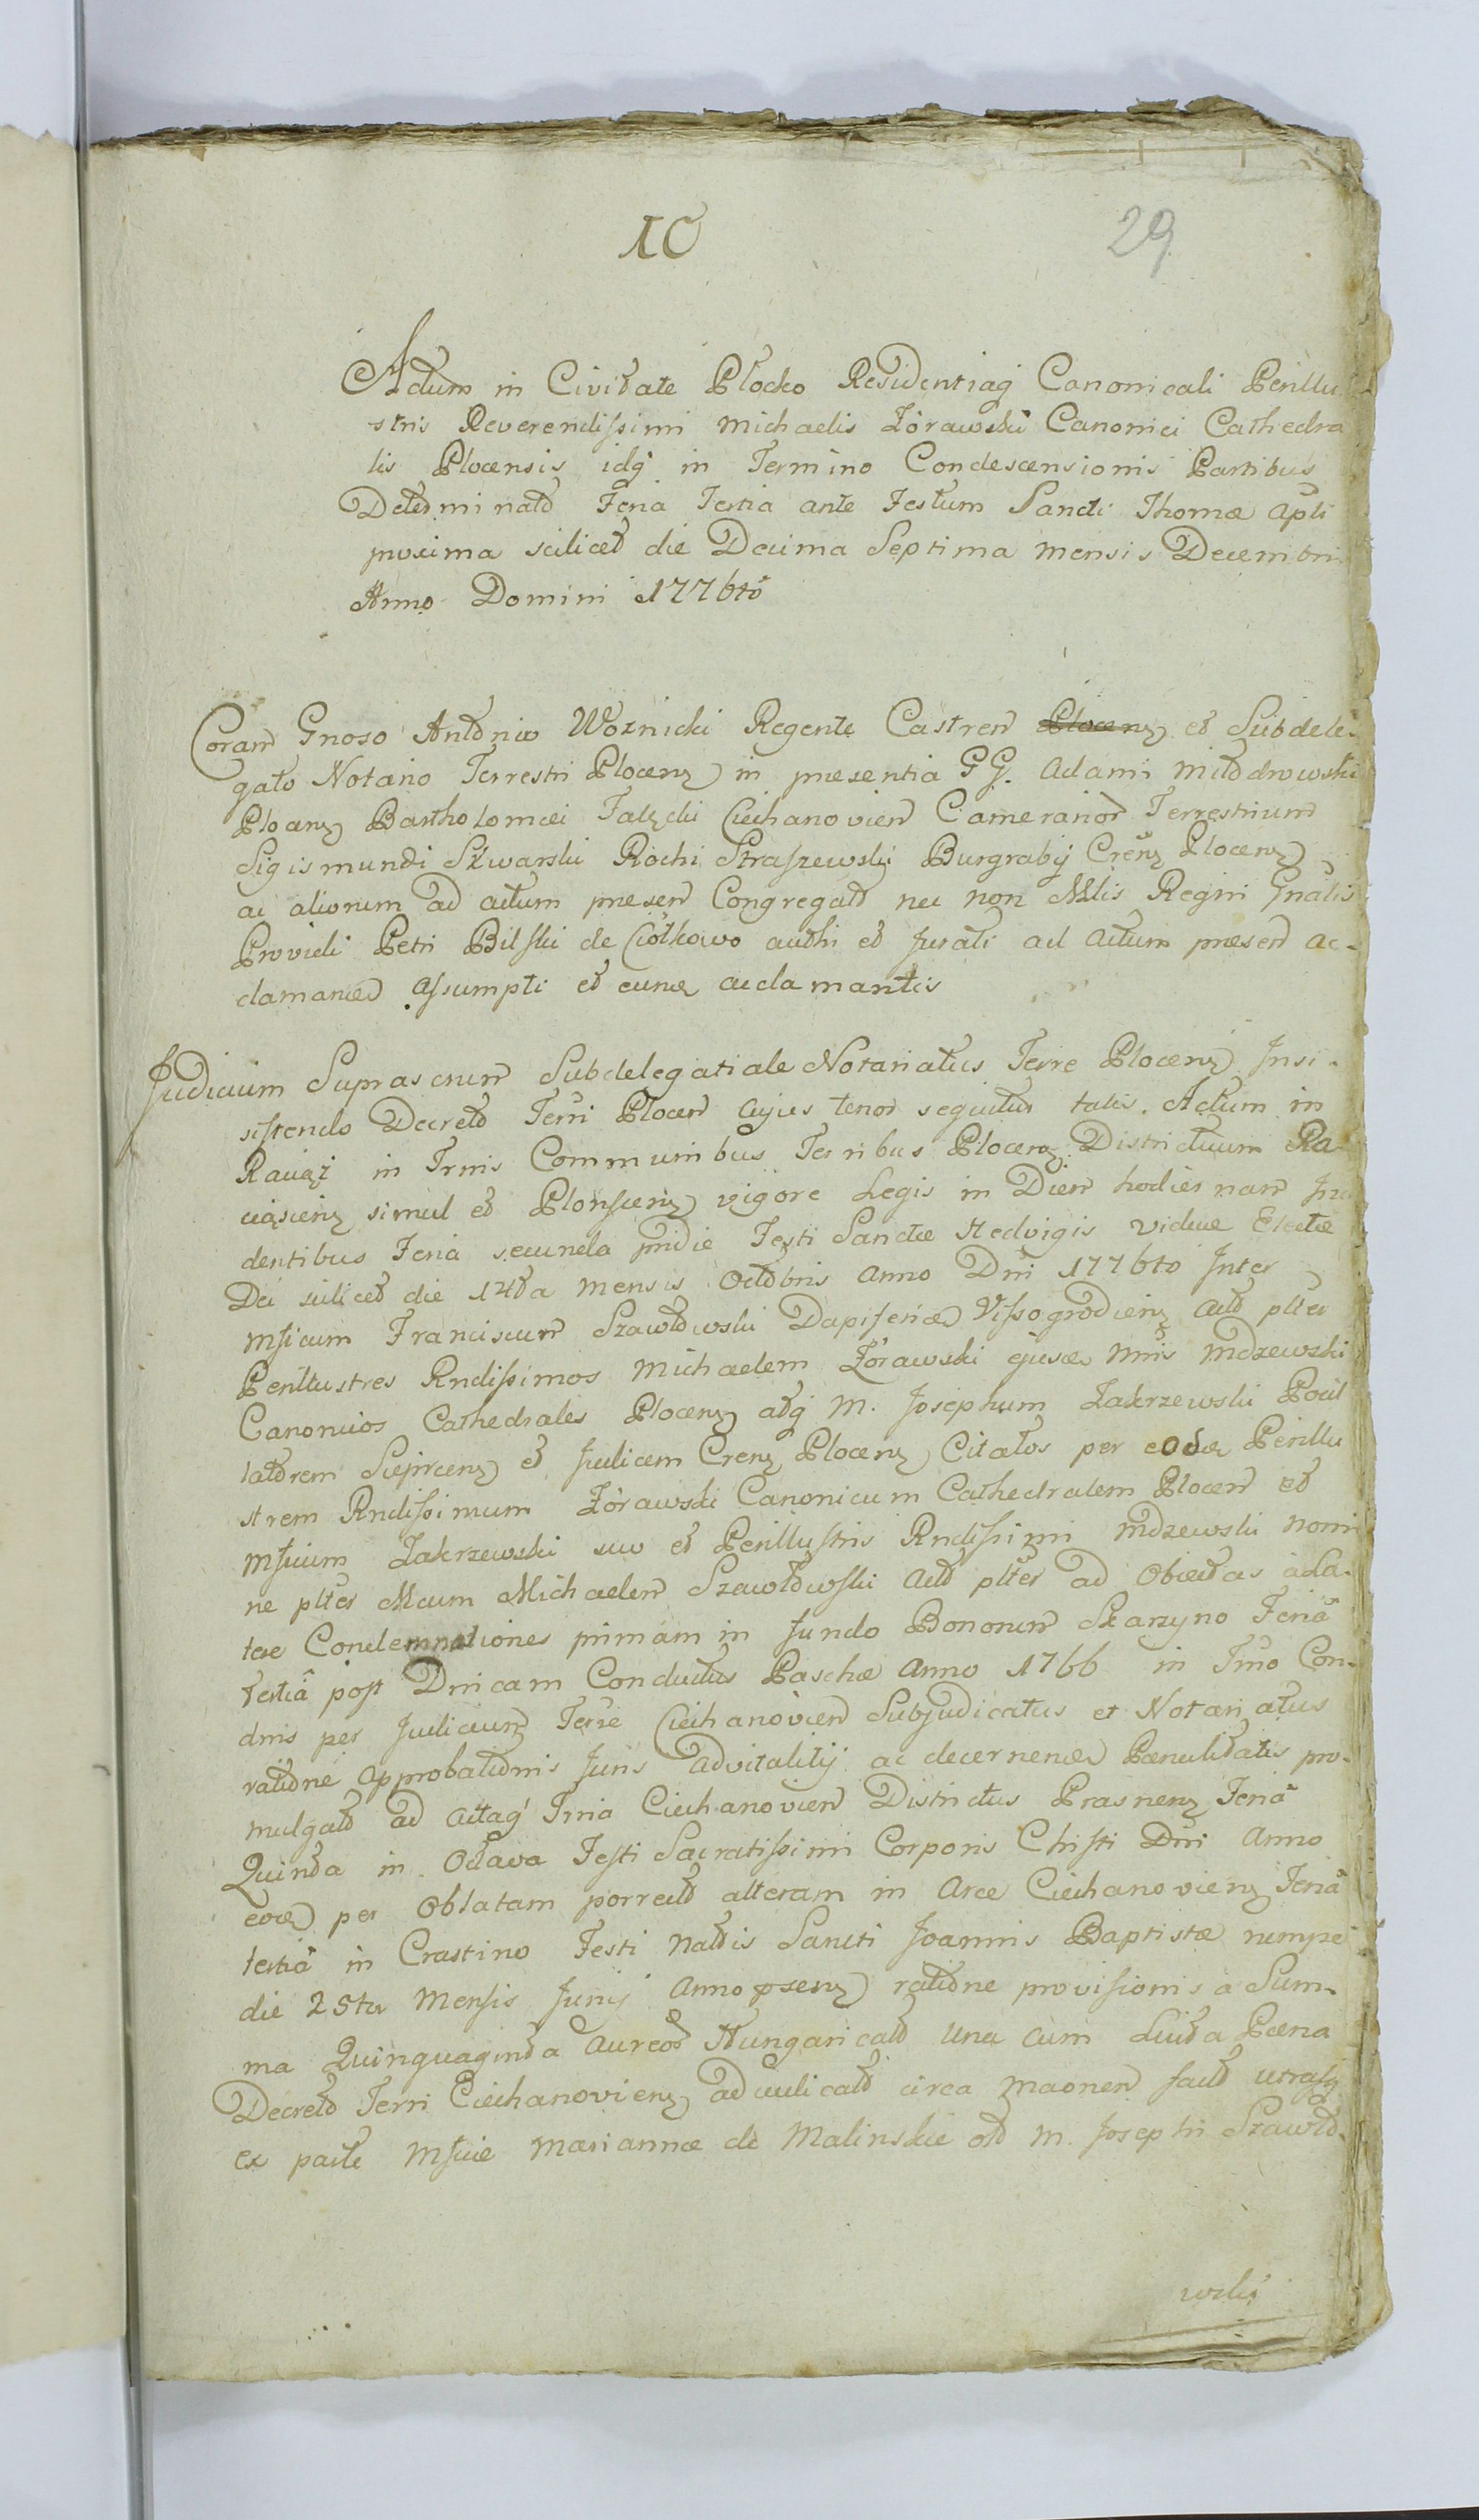 10
29
Actum in Civitate Płocko Residentiaq Canonicali Perillu
stris Reverendissimi Michaelis Żórawski Canonici Cathedra
lis Plocensis idq in Termino Condescensionis Partibus
Determinato Feria Tertia ante Festum Sancti Thomæ Apli
proxima scilicet die Decima Septima Mensis Decembris
Anno Domini 1776to
Coram Gnoso Antonio Woznicki Regente Castren Plocens et Subdele-
gato Notario Terrestri Plocens in presentia GG. Adami Miłodrowski
Plocens Bartholomæi Falęcki Ciechanovien Camerarior Terrestrium
Sigismundi Skwarski Rochi Straszewski Burgrabij Crens Plocens
ac aliorum ad actum presen Congregator nec non Mlis Regni Gnalis
Providi Petri Bilski de Ciółkowo authi et Jurati ad actum præsen ac-
clamand assumpti et eund acclamantis
Judicium Suprascrium Subdelegatiale Notariatus Terre Plocens Insi-
sistendo Decreto Terri Plocen cujus tenor sequitur talis. Actum in
Raciąż in Trnis Communibus Terribus Plocens Districtuum Ra-
ciąsciens simul et Plonscens vigore Legis in Diem hodiernam Inci
dentibus Feria secunda pridie Festi Sanctæ Hedvigis viduæ Electæ
Dei scilicet die 14ta Mensis Octobris Anno Dni 1776to Inter
Msicum Franciscum Szawłowski Dapiferid Vissogrodiens Act plter
Perillustres Rndissimos Michaelem Żórawski ejusd Nnis Mdzewski
Canonicos Cathedrales Plocens atq M. Josephum Zakrzewski Pocil
latorem Sieprcens et Judicem Crens Plocens Citatos per eosd Perillu
strem Rndissimum Żórawski Canonicum Cathedralem Plocen et
Msicum Zakrzewski suo et Perillustris Rndissimi Mdzewski nomi
ne plter Mcum Michaelem Szawłowski Act plter ad Obiectas à La-
tere Condemnationes primam in fundo Bonorum Skarzyno Feriâ
tertiâ post Dnicam Conductus Paschæ Anno 1766 in Tmo Con-
dnis per Judicium Terre Ciechanovien Subjudicatus et Notariatus
ratione Approbationis Juris Advitalitij ac decernend Pænalitatis pro-
mulgat ad Actaq Trria Ciechanovien Districtus Prasnens Feriâ
Quinta in Octava Festi Sacratissimi Corporis Christi Dni Anno
eod per Oblatam porrect alteram in Arce Ciechanoviens Feriâ
tertiâ in Crastino Festi Natis Sancti Joannis Baptistæ nempe
die 25ta Mensis Junij Anno psens ratione provisionis à Sum-
ma Quinquaginta Aureor Hungarical Una cum Luita Pæna
Decreto Terri Ciechanoviens adjudicat circa Maonem fact utrasq
ex parte Msicæ Mariannæ de Malinskie olo M. Josephi Szawło-
wski